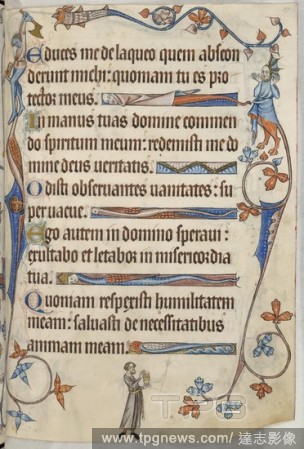 Educes me de laqueo quem abscon
derunt michi: quoniam tu es pro
tector meus.
In manus tuas domine commen
do spiritum meum: redemisti me do
mine deus ueritatis.
Odisti obseruantes uanitates: su
peruacue.
Ego autem in domino speraui:
exultabo et letabor in misericordia
tua.
Quoniam respexisti humilitatem
meam: saluasti de necessitatibus
animam meam.
TPG
www.tpgnews.com/ 達志影像